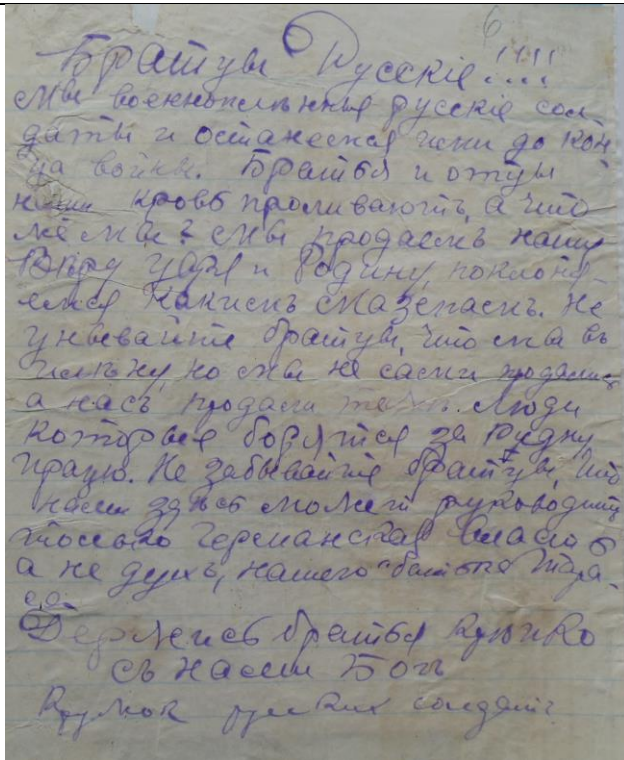 6
Братцы Русскіе!!!!
Мы военнопленные русскіе сол-
даты и останемся ими до кон-
ца войны. Братья и отцы
наши кровь проливаютъ, а что
же мы? Мы продаемъ нашу
Вѣру Царя и Родину, поклоня-
емся какимъ мазепамъ. Не
унывайте братцы, что мы въ
плѣну, но мы не сами продались
а насъ продали люди
которые борятся за Ридну
Не забывайте братцы, что
нами здѣсь можетъ руководить
только германская власть
а не духъ, нашего "батька Тара-
са.
Держись братья кучко
съ нами Богъ
Кружок русских солдатъ.